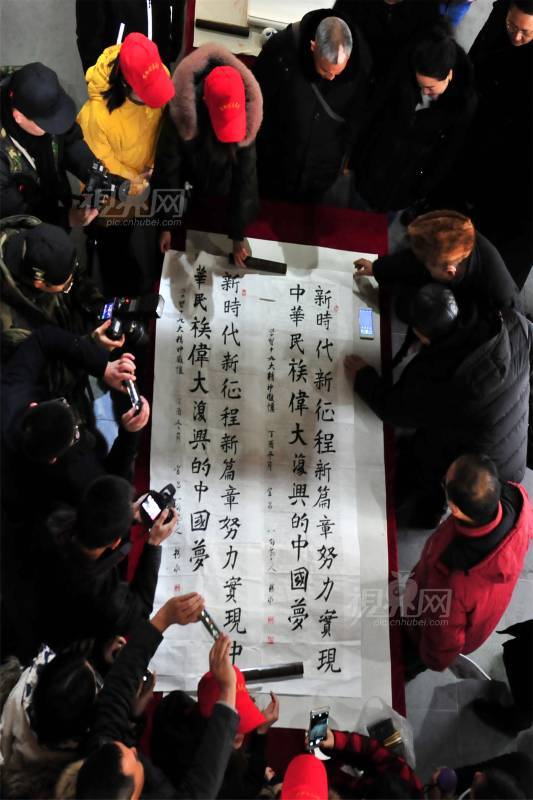 新時代新征程新篇章努力實現
中華民族偉大復興的中國夢
新時代新征程新篇章努力實現中
華民族偉大復興的中國夢
視界网
pic.cnhubei.com
視界网
pic.cnhubei.com